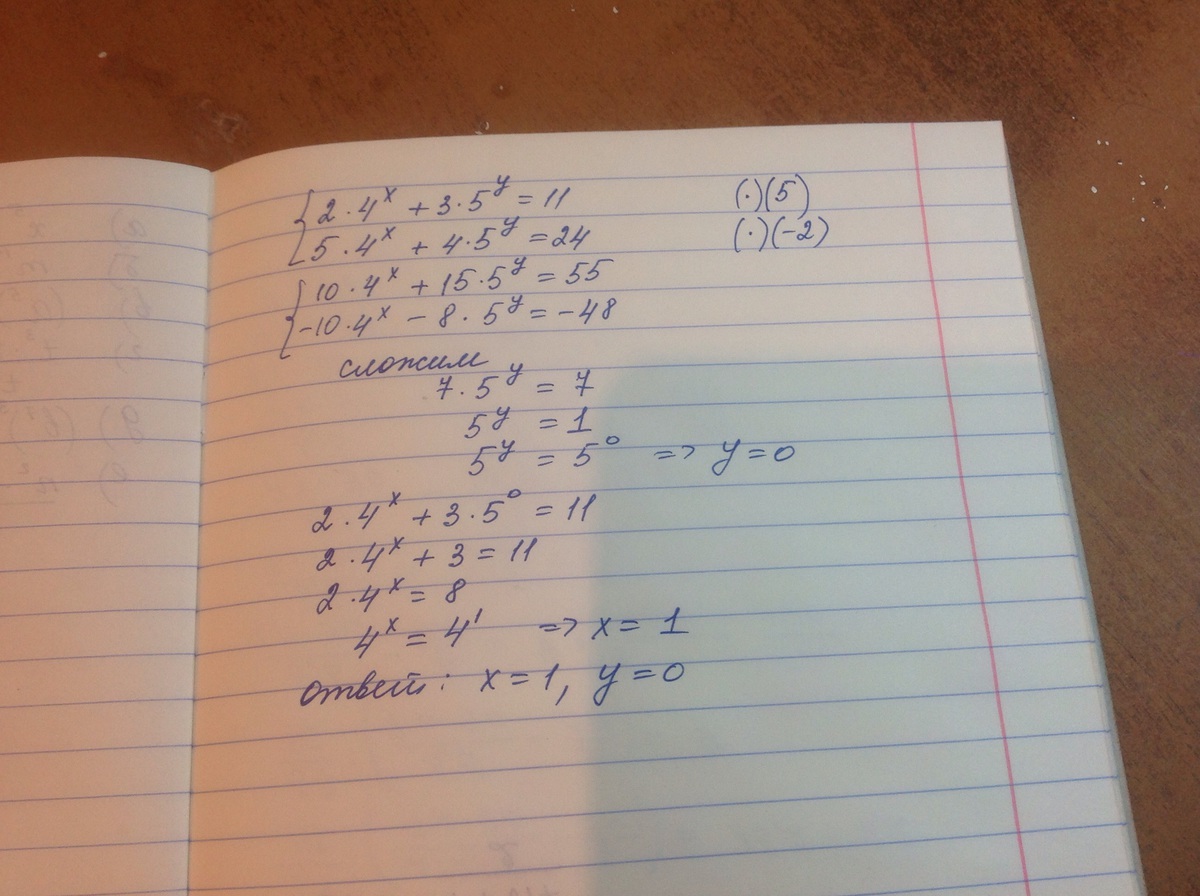 { 2·4ˣ + 3·5ʸ = 11 (·)(5)
5·4ˣ + 4·5ʸ = 24 (·)(-2)
{ 10·4ˣ + 15·5ʸ = 55
-10·4ˣ - 8·5ʸ = -48
сложим
7·5ʸ = 7
5ʸ = 1
5ʸ = 5⁰ => y = 0
2·4ˣ + 3·5⁰ = 11
2·4ˣ + 3 = 11
2·4ˣ = 8
4ˣ = 4¹ => x = 1
ответ: x = 1, y = 0